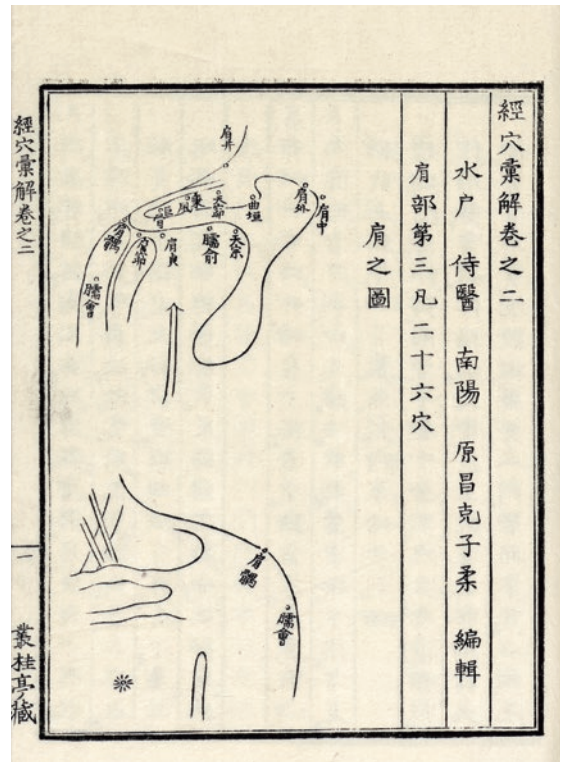 經穴彙解卷之二
水戶 侍醫 南陽 原昌克子柔 編輯
肩部第三凡二十六穴
肩之圖
肩井
肩中
肩外
曲垣
天宗
天窌
秉風
臑俞
肩貞
巨骨
肩窌
肩髃
臑會
肩髃
臑會
經穴彙解卷之二
一
叢桂亭藏